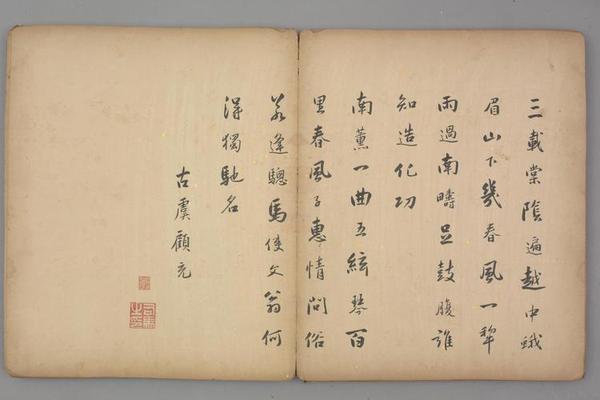 三載棠陰遍越中蛾
眉山下幾春風一犂
雨過南疇足鼓腹誰
知造化功
南薰一曲五絃琴百
里春風子惠情問俗
若逢驄馬使文翁何
得獨馳名
古虞顧充